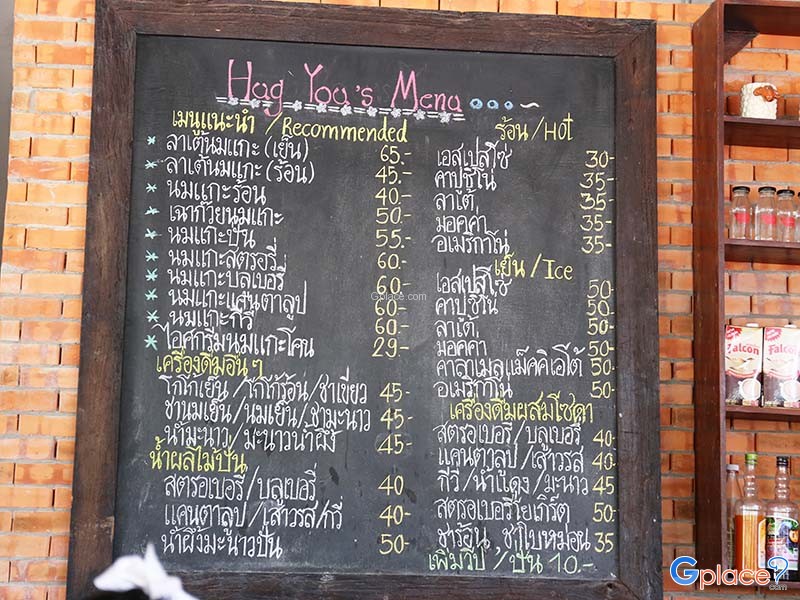 Hug You's Menu
เมนูแนะนำ / Recommended
* ลาเต้นมแกะ (เย็น) 65.-
* ลาเต้นมแกะ (ร้อน) 45.-
* นมแกะร้อน 40.-
* เฉาก๊วยนมแกะ 50.-
* นมแกะปั่น 55.-
* นมแกะสตรอรี่ 60.-
* นมแกะบลูเบอรี่ 60-
* นมแกะแคนตาลูป 60-
* นมแกะกีวี่ 60-
* ไอศกรีมนมแกะโคน 29.-
เครื่องดื่มอื่น ๆ
โกโก้เย็น / โกโก้ร้อน / ชาเขียว 45-
ชานมเย็น / นมเย็น / ชามะนาว 45-
น้ำมะนาว / มะนาวน้ำผึ้ง 45-
น้ำผลไม้ปั่น
สตรอเบอรี่ / บลูเบอรี่ 40.
แคนตาลูป / เสาวรส / กีวี่ 40-
น้ำผึ้งมะนาวปั่น 50-
ร้อน / Hot
เอสเปสโซ่ 30-
คาปูชิโน่ 35-
ลาเต้ 35-
มอคค่า 35-
อเมริกาโน่ 35-
เย็น / Ice
เอสเปสโซ่ 50-
คาปูชิโน่ 50-
ลาเต้ 50-
มอคค่า 50-
คาลาเมลแม็คคิเอโต้ 50-
อเมริกาโน่ 50-
เครื่องดื่มผสมโซดา
สตรอเบอรี่ / บลูเบอรี่ 40-
แคนตาลูป / เสาวรส 40-
กีวี่ / น้ำแดง / มะนาว 45
สตรอเบอรี่โยเกิร์ต 50-
ชาร้อน , ชาใบหม่อน 35
เพิ่มวิป / ปั่น 10.-
Gplace.com
Falcon
Falcon
Gplace?
.com